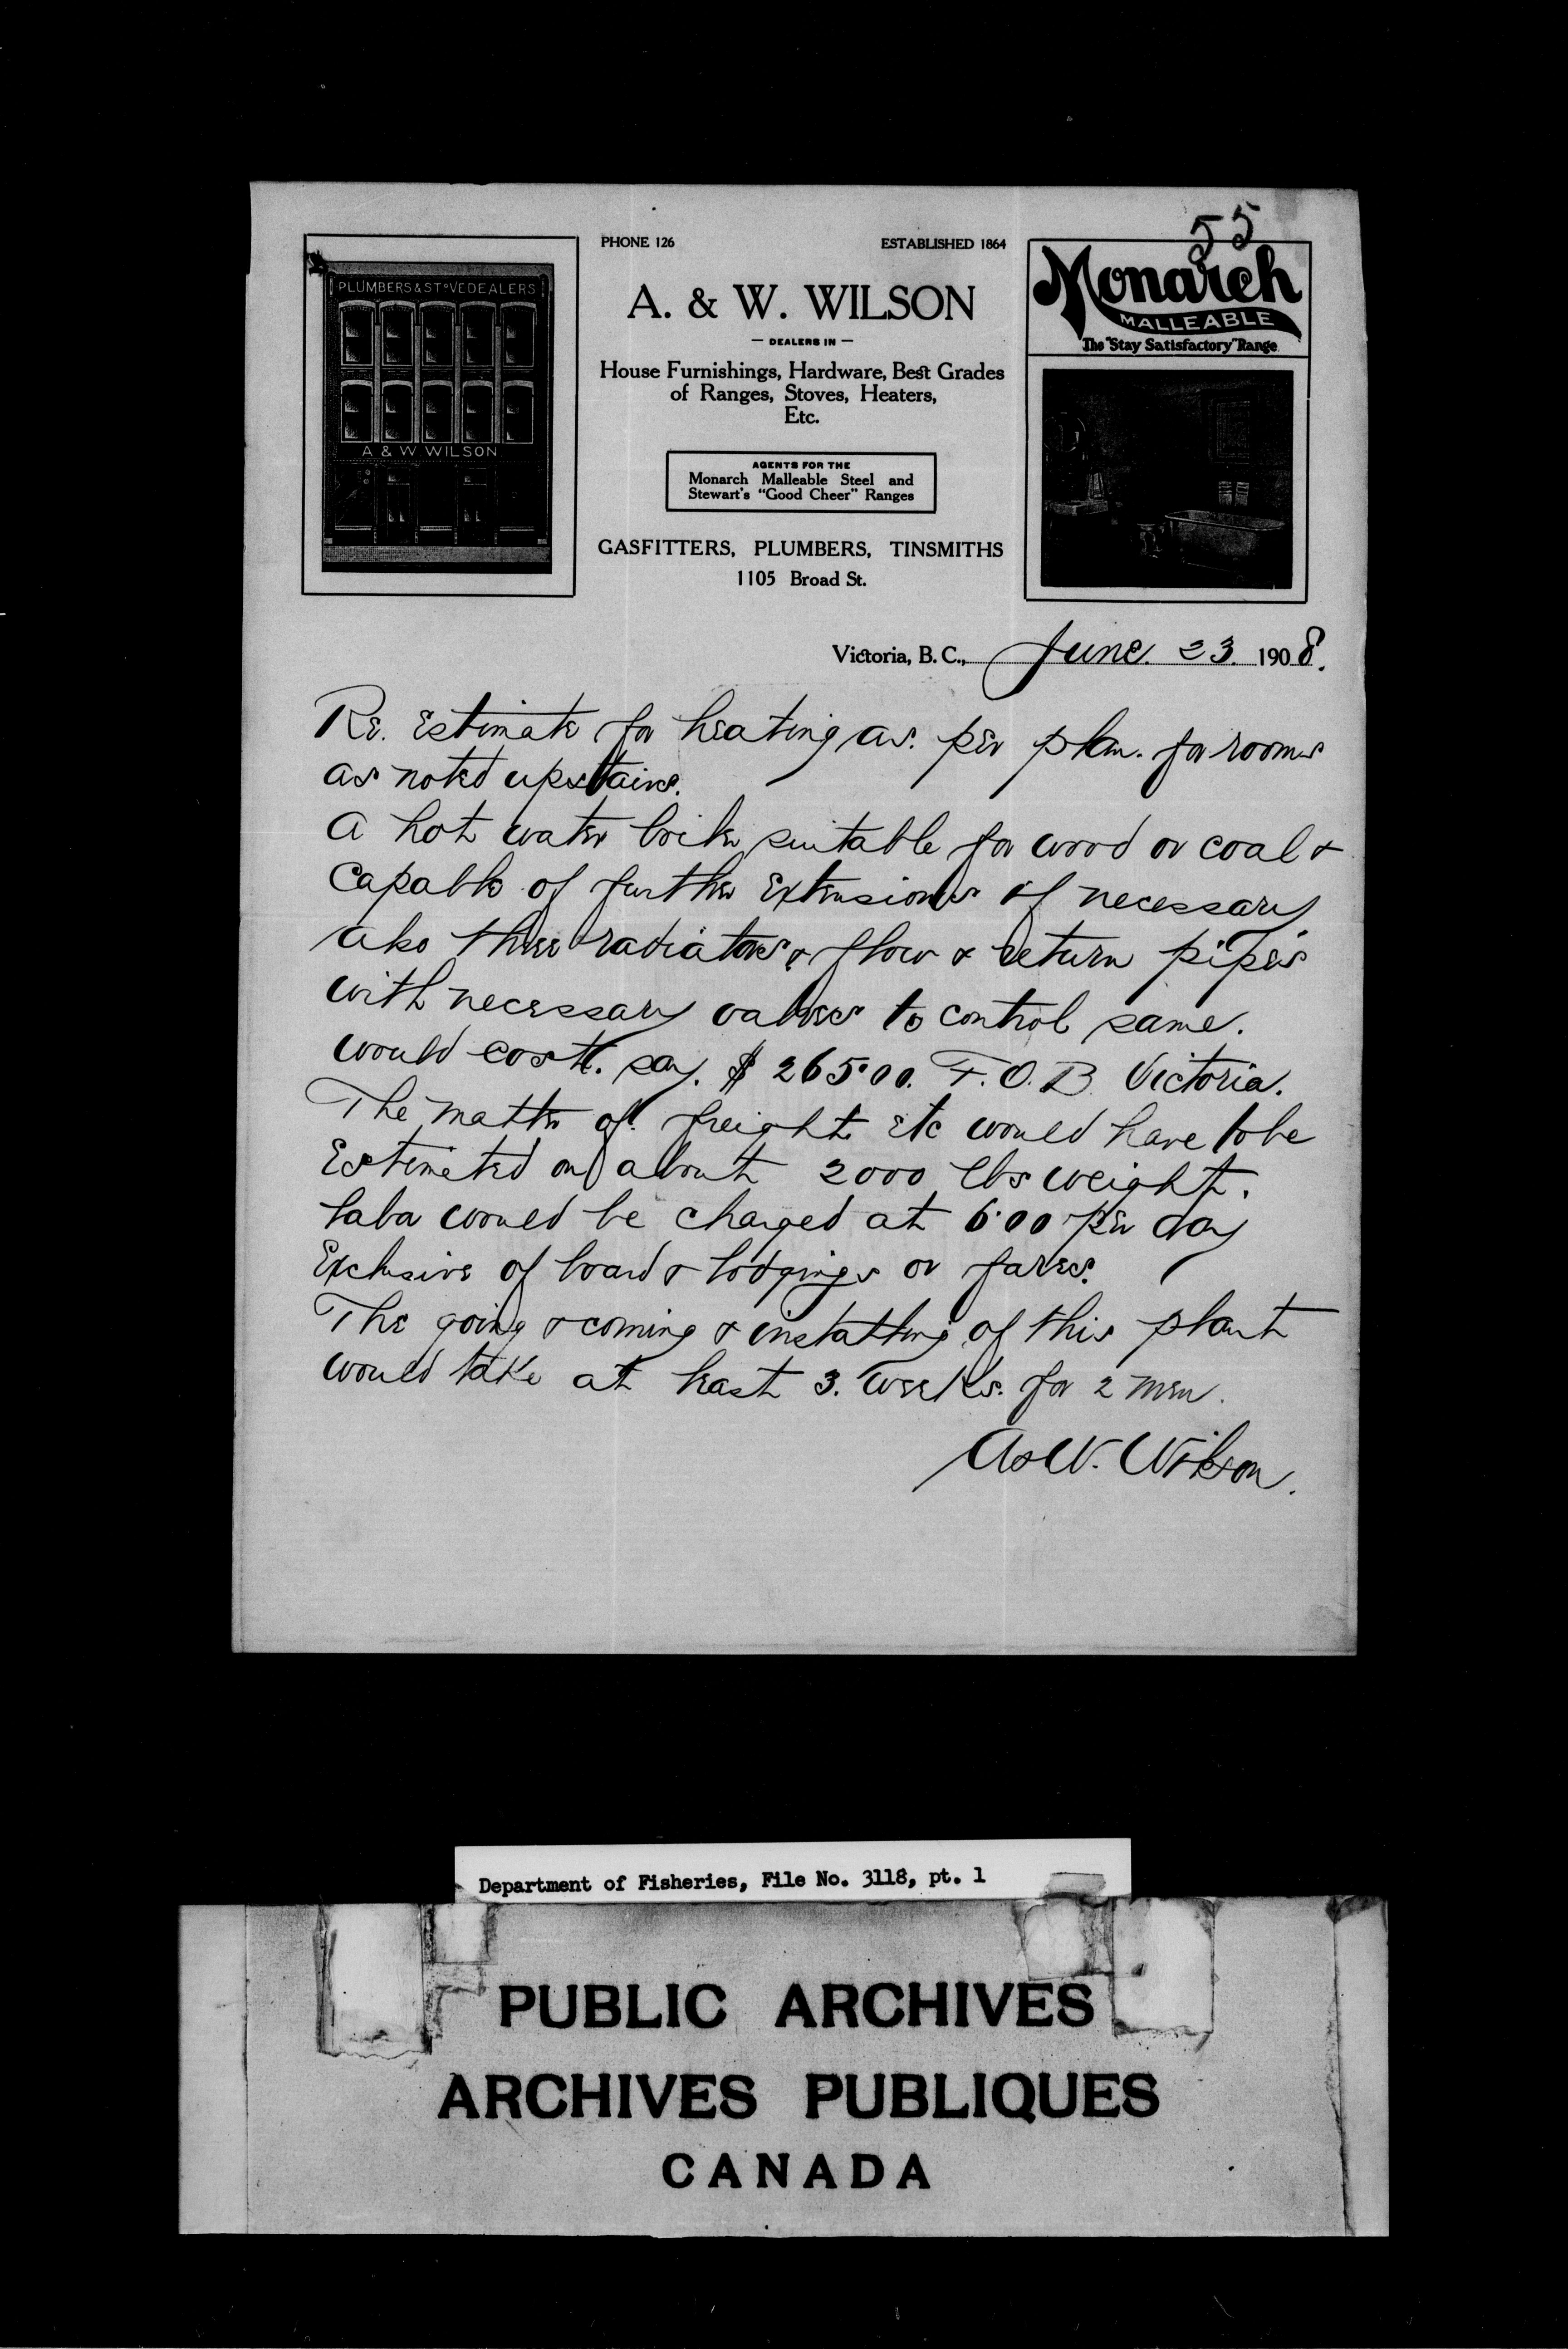 55
PHONE 126 ESTABLISHED 1864
PLUMBERS & STOVE DEALERS
A & W WILSON
A. & W. WILSON
— DEALERS IN —
House Furnishings, Hardware, Best Grades
of Ranges, Stoves, Heaters,
Etc.
AGENTS FOR THE
Monarch Malleable Steel and
Stewart's "Good Cheer" Ranges
GASFITTERS, PLUMBERS, TINSMITHS
1105 Broad St.
Monarch
MALLEABLE
The "Stay Satisfactory" Range
Victoria, B.C., June. 23. 1908.
Re. Estimate for heating as. per plan. for rooms
as noted upstairs.
A hot water boiler suitable for wood or coal &
Capable of further Extensions if necessary
also three radiators & flow & return pipes
with necessary valves to control same.
would cost. say. $ 265.00. F.O.B. Victoria.
The matter of. freight. etc would have to be
Estimated on about 2000 lbs weight.
Labor would be charged at 6.00 per day
Exclusive of board & lodgings or fares.
The going & coming & installing of this plant
would take at least 3. weeks. for 2 men.
A & W. Wilson.
Department of Fisheries, File No. 3118, pt. 1
PUBLIC ARCHIVES
ARCHIVES PUBLIQUES
CANADA